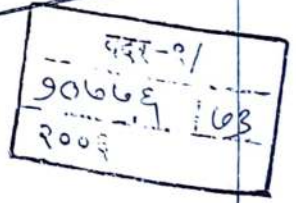 वदर-१/
१०७७६ ७३
२००६